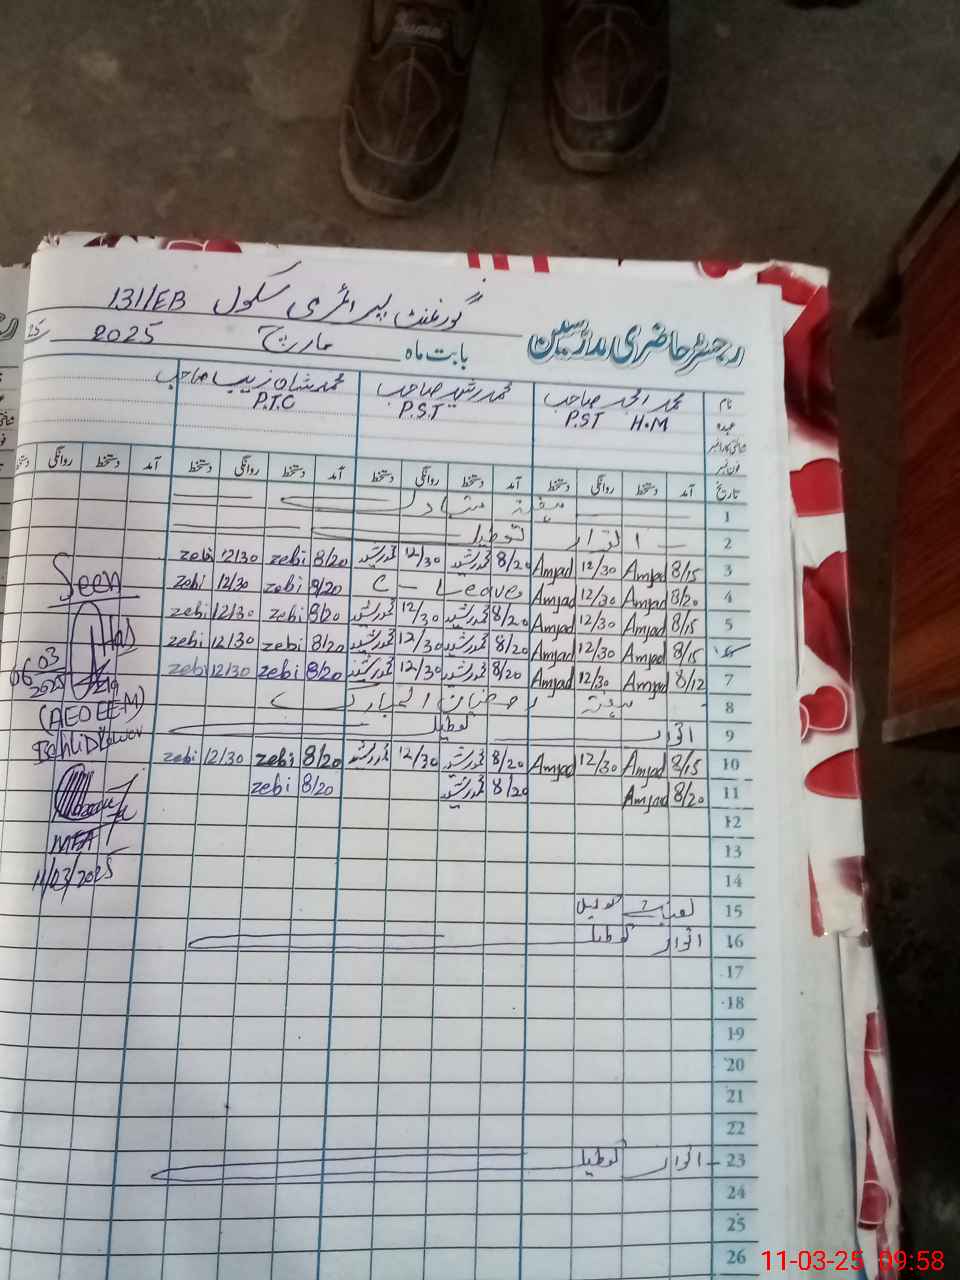 گورنمنٹ پرائمری سکول 131/EB
رجسٹر حاضری مدرسین بابت ماہ مارچ 2025
نام محمد امجد صاحب محمد رشید صاحب محمد شان زیب صاحب
عہدہ P.ST H.M P.S.T P.T.C
تاریخ آمد دستخط روانگی دستخط آمد دستخط روانگی دستخط آمد دستخط روانگی دستخط آمد دستخط روانگی دستخط
1 ہفتہ
2 اتوار تعطیل
3 8/15 Amjad 12/30 Amjad 8/20 محمد رشید 12/30 محمد رشید 8/20 zebi 12/30 zebi
4 8/20 Amjad 12/30 Amjad C - Leave 8/20 zebi 12/30 zebi
5 8/15 Amjad 12/30 Amjad 8/20 محمد رشید 12/30 محمد رشید 8/20 zebi 12/30 zebi
8/15 Amjad 12/30 Amjad 8/20 محمد رشید 12/30 محمد رشید 8/20 zebi 12/30 zebi
7 8/12 Amjad 12/30 Amjad 8/20 محمد رشید 12/30 محمد رشید 8/20 zebi 12/30 zebi
8 ہفتہ رمضان المبارک
9 اتوار تعطیل
10 8/15 Amjad 12/30 Amjad 8/20 محمد رشید 12/30 محمد رشید 8/20 zebi 12/30 zebi
11 8/20 Amjad 8/20 محمد رشید 8/20 zebi
12
13
14
15
16 اتوار تعطیل
17
18
19
20
21
22
23 اتوار تعطیل
24
25
26
Seen
06 03
2025
(AEO EE-M)
MEA
11/03/2025
11-03-25 09:58